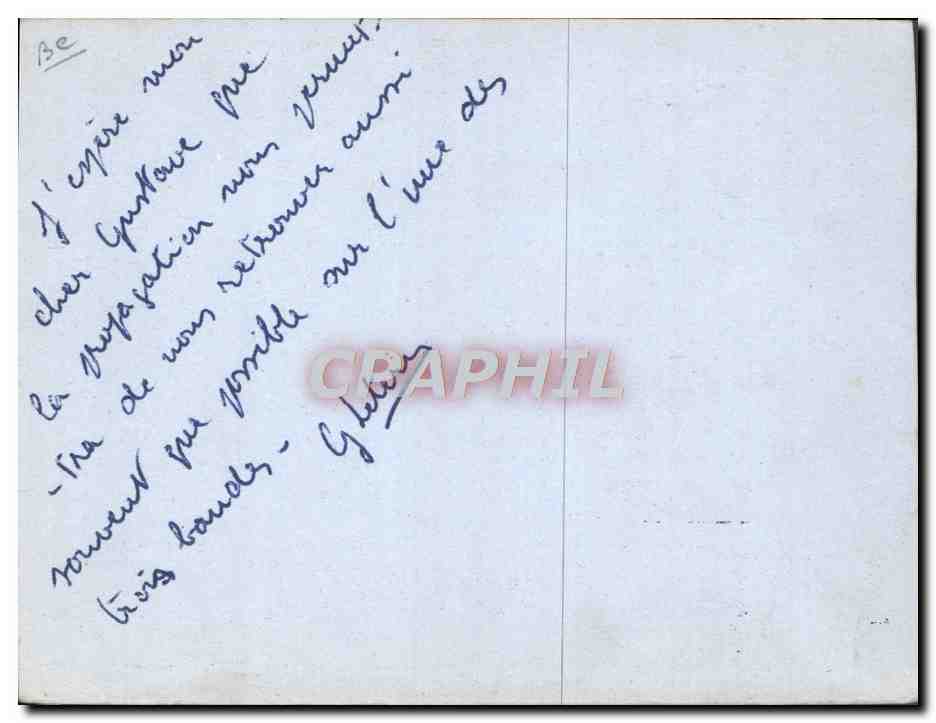 BC
J'espère mon
cher Gustave que
la propagation nous permet-
-tra de nous retrouver aussi
souvent que possible sur l'une des
trois bandes -
CRAPHIL